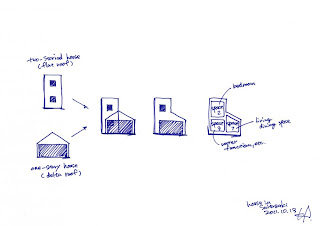 two-storied house
(flat roof)
one-story house
(delta roof)
bedroom
space
2
space
3
space
1
living
dining space
house in
2011.10.13